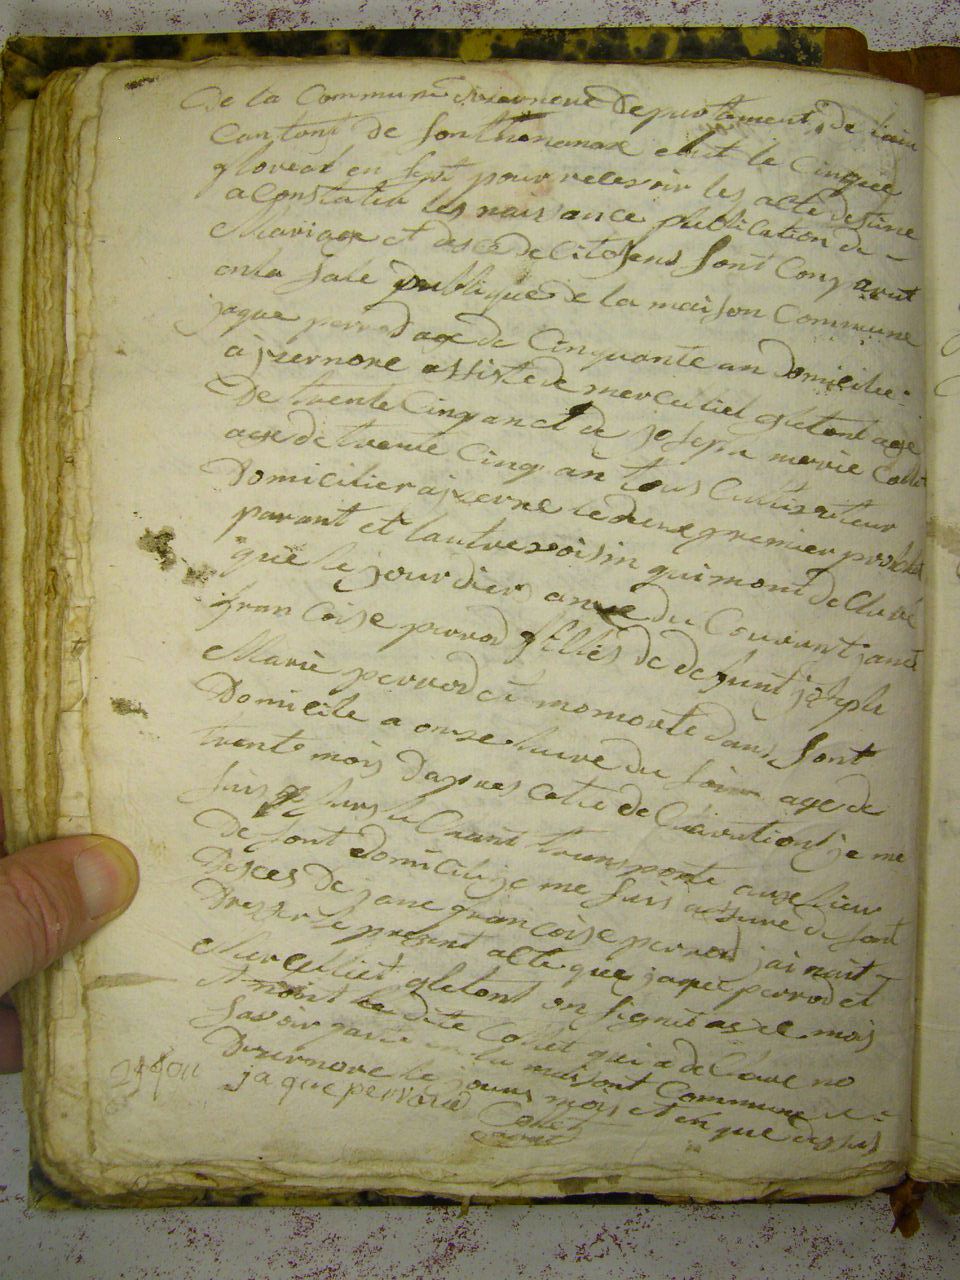 De la Commune dizernore Departement de lain
Canton de Sonthonnax elut le Cinque
gloreal en sept pour recevoir les acte destine
a Constater les naissance publication de
Mariage et desce de Citoiens sont Comparut
en la sale publique de la maison Commune
jaque perrod age de Cinquante an domicilie
a jzernore assiste de merce liet gletont age
De trente Cinq an et de joseph marie Collet
age de trente Cinq an tous Cultivateur
Domicilier a jzerne le deux premier proche
parant et lautre voisin qui mont declaré
que le jour dier du Courant jane
francoise perrod filles de defunt joseph
Marie perrod et momorte dans sont
Domicile a onse huire du soir age de
trente mois Dapres cette declaration je me
suis sur le Chant transporte aux lieu
de sont domicile je me suis assure du sont
Desces de jane francoise perrod jai
Dresser le present acte que jaque perrod et
Merce liet gletont on signes avec mois
et non le dite Collet qui a declare no
savoir en la maisont Commune
Dizernore le jours mois et en que dessus
jaque perrod
Collet